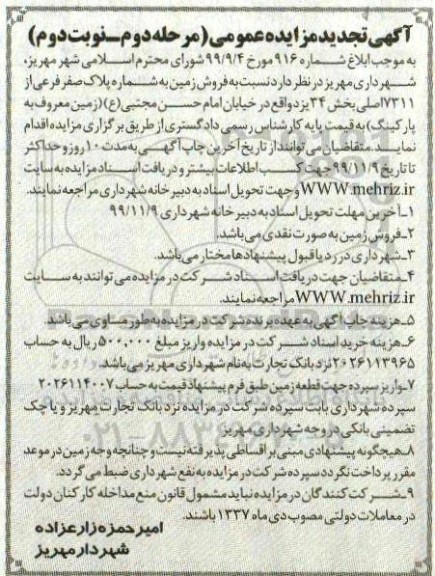 آگهی تجدید مزایده عمومی (مرحله دوم ـ نوبت دوم)
به موجب ابلاغ شماره ۹۱۶ مورخ ۹۹/۹/۴ شورای محترم اسلامی شهر مهریز،
شهرداری مهریز در نظر دارد نسبت به فروش زمین به شماره پلاک صفر فرعی از
۷۳۱۱ اصلی بخش ۳۴ یزد واقع در خیابان امام حسن مجتبی (ع) (زمین معروف به
پارکینگ) به قیمت پایه کارشناس رسمی دادگستری از طریق برگزاری مزایده اقدام
نماید. متقاضیان می توانند از تاریخ آخرین چاپ آگهی به مدت ۱۰ روز و حداکثر
تا تاریخ ۹۹/۱۱/۹ جهت کسب اطلاعات بیشتر و دریافت اسناد مزایده به سایت
WWW.mehriz.ir و جهت تحویل اسناد به دبیرخانه شهرداری مراجعه نمایند.
۱ـ آخرین مهلت تحویل اسناد به دبیرخانه شهرداری ۹۹/۱۱/۹
۲ـ فروش زمین به صورت نقدی می باشد.
۳ـ شهرداری در رد یا قبول پیشنهادها مختار می باشد.
۴ـ متقاضیان جهت دریافت اسناد شرکت در مزایده می توانند به سایت
WWW.mehriz.ir مراجعه نمایند.
۵ـ هزینه چاپ آگهی به عهده برنده شرکت در مزایده به طور مساوی می باشد.
۶ـ هزینه خرید اسناد شرکت در مزایده واریز مبلغ ۵۰۰,۰۰۰ ریال به حساب
۲۰۲۶۱۱۳۹۶۵ نزد بانک تجارت به نام شهرداری مهریز می باشد.
۷ـ واریز سپرده جهت قطعه زمین طبق فرم پیشنهاد قیمت به حساب ۲۰۲۶۱۱۴۰۰۷
سپرده شهرداری بابت سپرده شرکت در مزایده نزد بانک تجارت مهریز و یا چک
تضمینی بانکی در وجه شهرداری مهریز
۸ـ هیچگونه پیشنهادی مبنی بر اقساطی پذیرفته نیست و چنانچه وجه زمین در موعد
مقرر پرداخت نگردد سپرده شرکت در مزایده به نفع شهرداری ضبط می گردد.
۹ـ شرکت کنندگان در مزایده نباید مشمول قانون منع مداخله کارکنان دولت
در معاملات دولتی مصوب دی ماه ۱۳۳۷ باشند.
امیر حمزه زارعزاده
شهردار مهریز